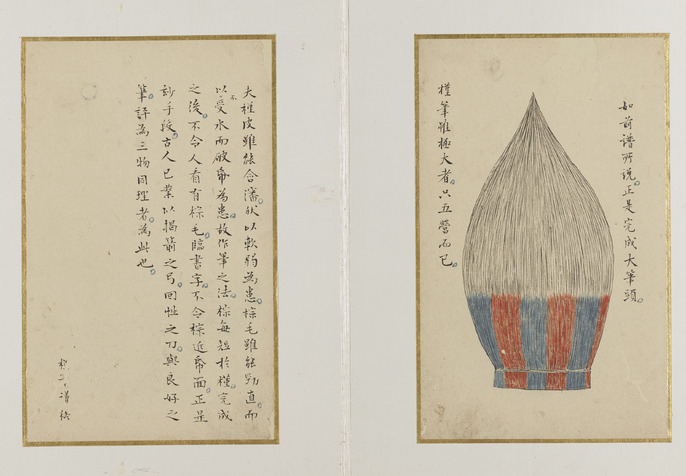 如前谱所说。正是完成大筆頭。
槿筆雖極大者。只五營而已。
夫槿皮雖能含瀋。然以軟弱為患。棕毛雖能勁直。而
以不受水而破㡀為患。故作筆之法。棕每短於槿。完成
之後。不令人看有棕毛。臨書字。不令棕近㡀面。正是
妙手段。古人已業以揭箭之弓。回性之刀。與良好之
筆。評為三物同理者。為此也。